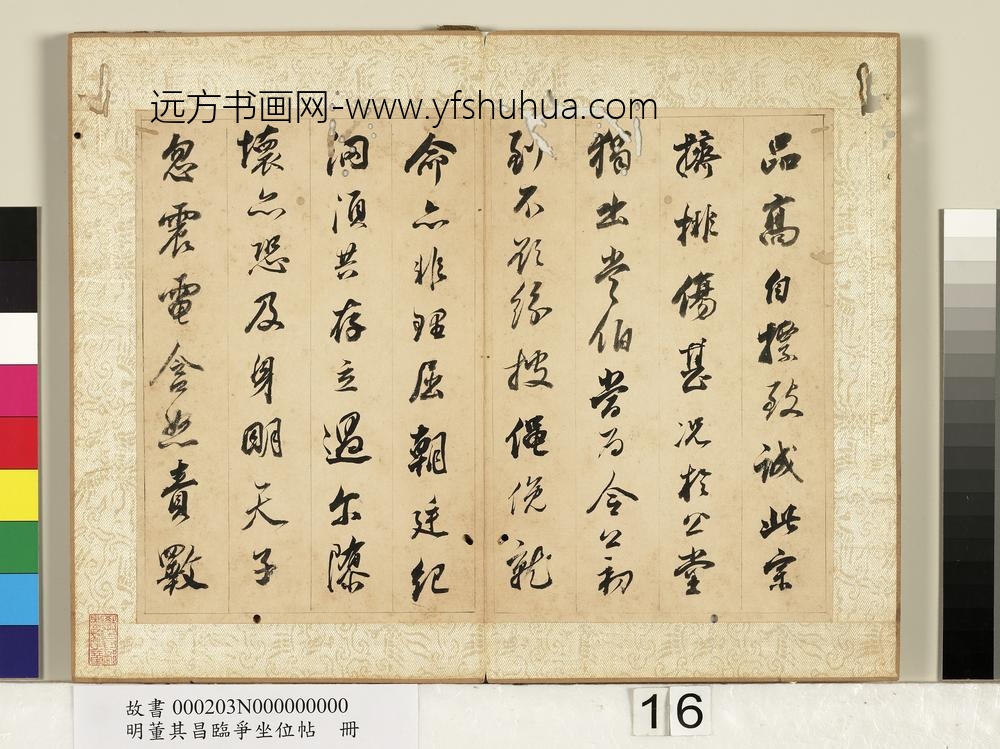 远方书画网-www.yfshuhua.com
品高自摽致誠此宗
擠排傷甚況於公堂
猲咄常伯當為令公初
到不欲紛披僶俛就
命亦非理屈朝廷紀
綱須共存立過尔隳
壞亦恐及身明天子
忽震電含怒責斁
故書 000203N000000000
明董其昌臨爭坐位帖 冊
16